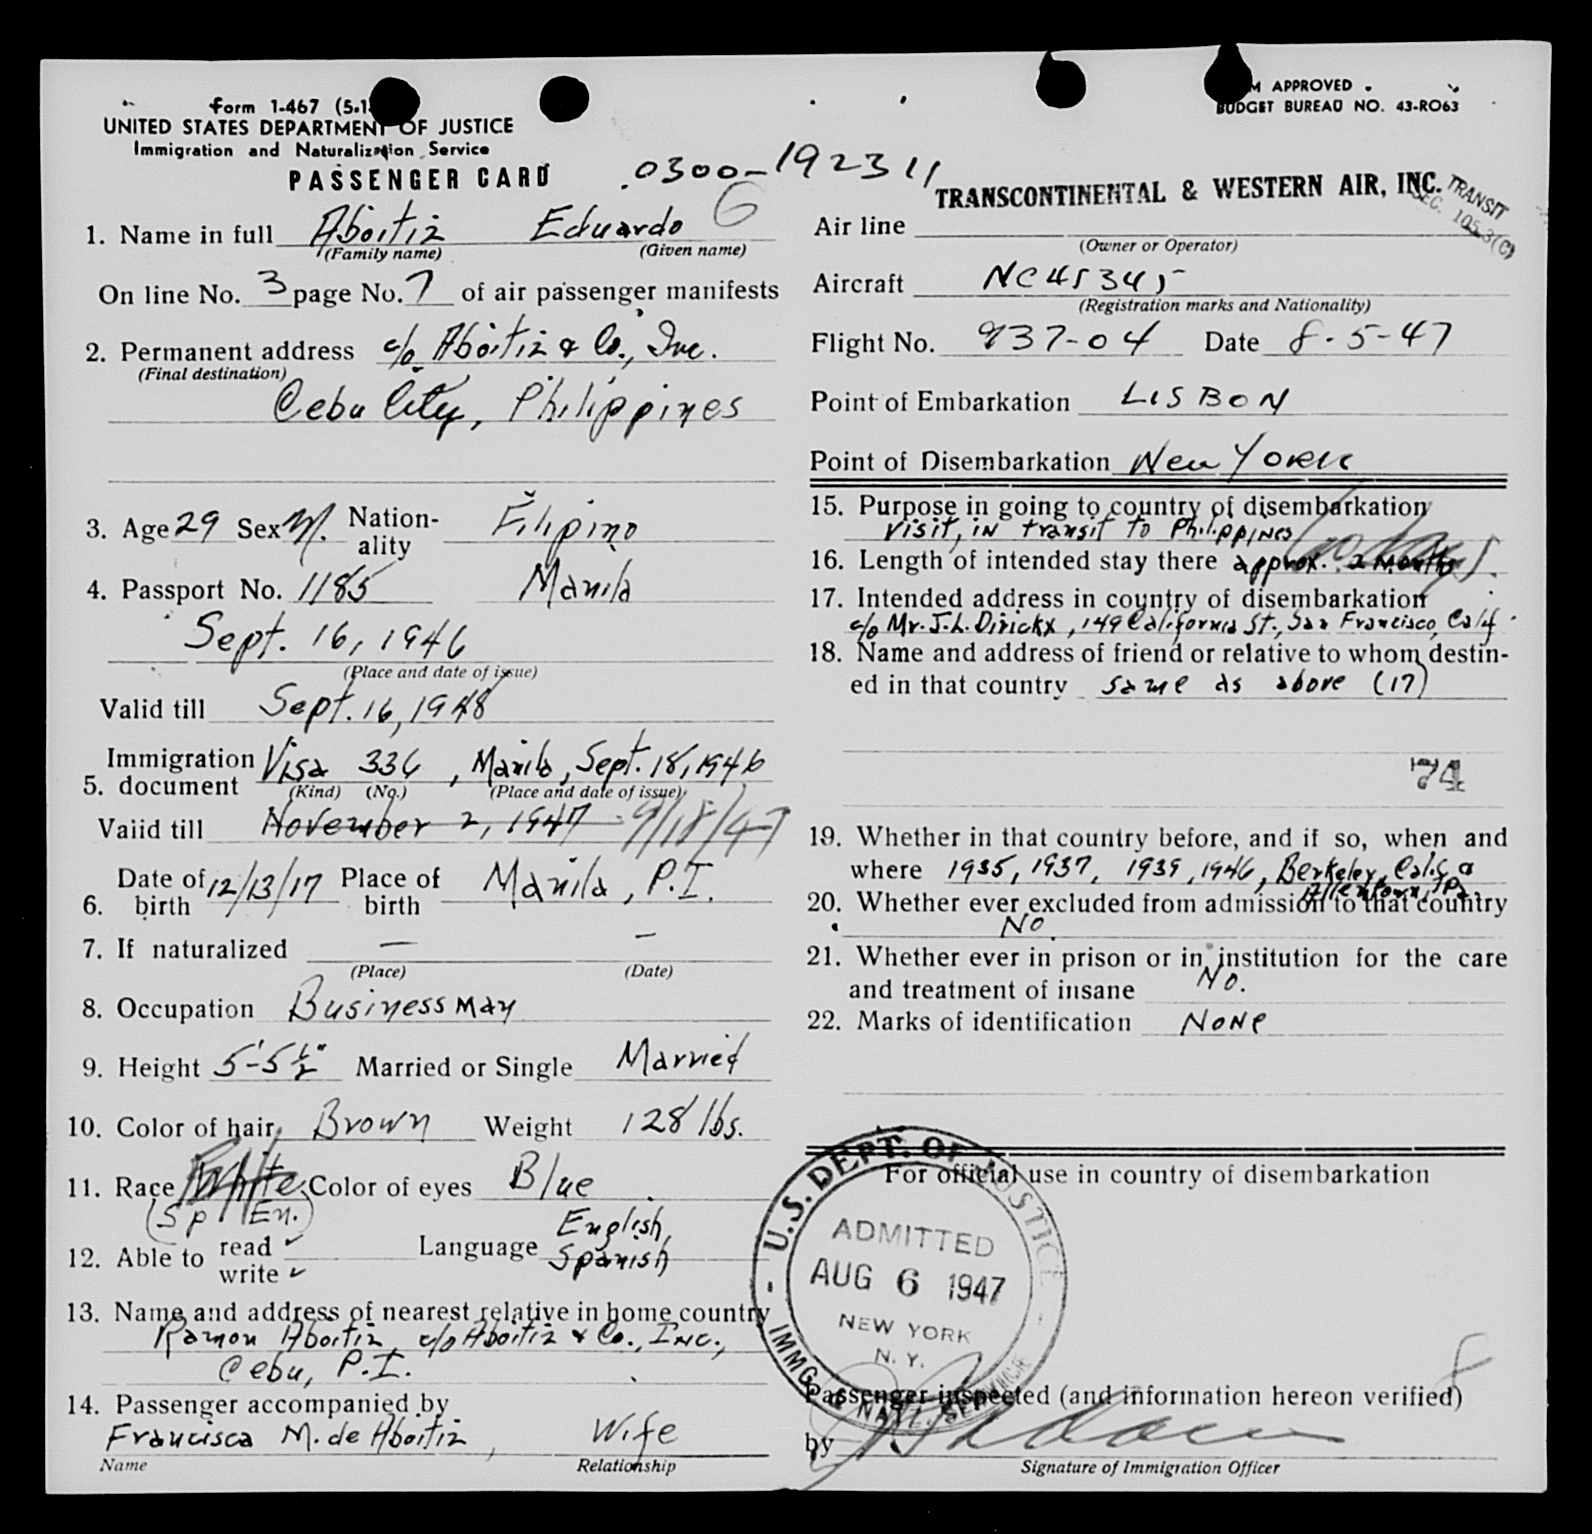 Form 1-467 (5-1
UNITED STATES DEPARTMENT OF JUSTICE
Immigration and Naturalization Service
PASSENGER CARD
0300-192311
M APPROVED
BUDGET BUREAU NO. 43-RO63
1. Name in full Aboitiz Eduardo 6
(Family name) (Given name)
On line No. 3 page No. 7 of air passenger manifests
2. Permanent address c/o Aboitiz & Co., Inc.
(Final destination)
Cebu City, Philippines
3. Age 29 Sex M. Nation-
ality Filipino
4. Passport No. 1185 Manila
Sept. 16, 1946
(Place and date of issue)
Valid till Sept. 16, 1948
Immigration
5. document Visa 336, Manila, Sept. 18, 1946
(Kind) (No.) (Place and date of issue)
Valid till November 2, 1947 9/18/47
6. Date of birth 12/13/17 Place of birth Manila, P.I.
7. If naturalized — —
(Place) (Date)
8. Occupation Business man
9. Height 5'-5½" Married or Single Married
10. Color of hair Brown Weight 128 lbs.
11. Race White Color of eyes Blue
(Sp En.)
12. Able to read ✓ write ✓ Language English, Spanish
13. Name and address of nearest relative in home country
Ramon Aboitiz c/o Aboitiz & Co., Inc.,
Cebu, P.I.
14. Passenger accompanied by
Francisca M. de Aboitiz, Wife
Name Relationship
TRANSCONTINENTAL & WESTERN AIR, INC.
TRANSIT
SEC. 105.3(C)
Air line
(Owner or Operator)
Aircraft NC45345
(Registration marks and Nationality)
Flight No. 937-04 Date 8-5-47
Point of Embarkation LISBON
Point of Disembarkation New York
15. Purpose in going to country of disembarkation
Visit, in transit to Philippines
16. Length of intended stay there approx. 2 months
17. Intended address in country of disembarkation
c/o Mr. J.L. Dirickx, 149 California St., San Francisco, Calif.
18. Name and address of friend or relative to whom destin-
ed in that country same as above (17)
74
19. Whether in that country before, and if so, when and
where 1935, 1937, 1939, 1946, Berkeley, Calif. &
Allentown, Pa.
20. Whether ever excluded from admission to that country
No.
21. Whether ever in prison or in institution for the care
and treatment of insane No.
22. Marks of identification None
For official use in country of disembarkation
U.S. DEPT. OF JUSTICE
ADMITTED
AUG 6 1947
NEW YORK
N. Y.
IMMG. & NATZ. SERVICE
8
Passenger inspected (and information hereon verified)
by
Signature of Immigration Officer